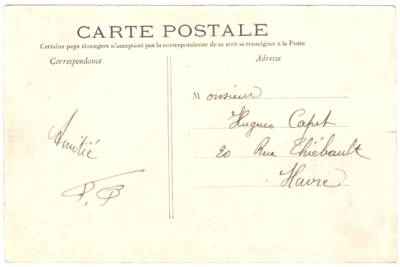 CARTE POSTALE
Certains pays étrangers n'acceptent pas la correspondance de ce côté se renseigner à la Poste
Correspondance
Adresse
Amitié
Monsieur
Hugues Capet
20 Rue Thiébault
Havre